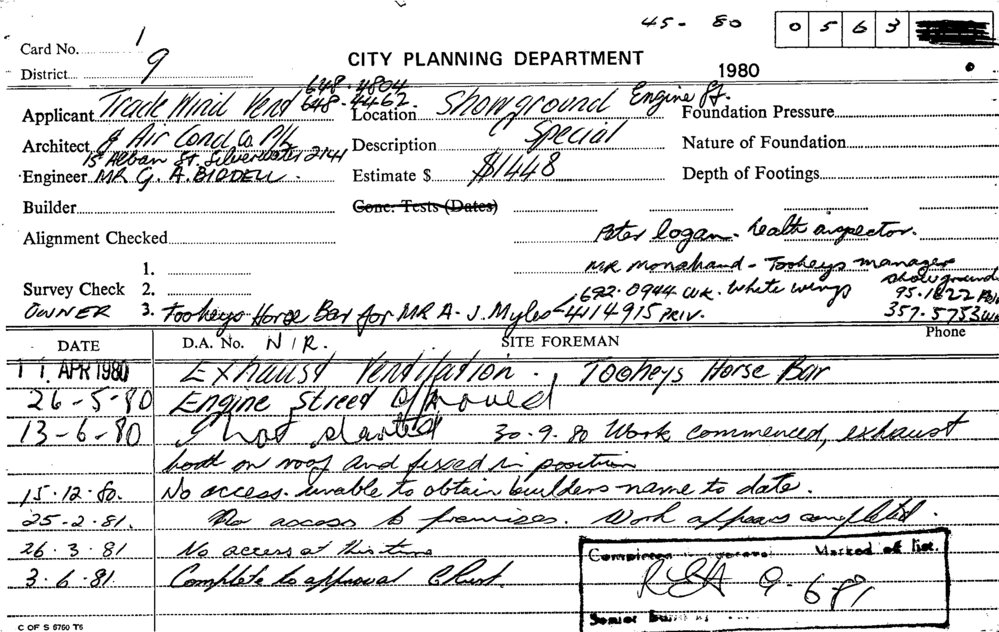 45 - 80 0 5 6 3
Card No. 1
CITY PLANNING DEPARTMENT
District 9
1980
648.4804
Applicant Trade Mind Vend 648.4462 Location Showground Engine St. Foundation Pressure
Architect & Air Cond Co P/L Description Special Nature of Foundation
15 Alban St. Silverwater 2141
Engineer MR G. A. BIDDELL. Estimate $ $1448 Depth of Footings
Builder Conc. Tests (Dates)
Alignment Checked Peter Logan - health inspector.
1. MR Monahand - Tooheys manager
Survey Check 2. 692.0944 WK. White wings showground
95.1622
OWNER 3. Tooheys Horse Bar for MR A. J. Myles 4114915 PRIV. 357.5753
DATE D.A. No. N/R. SITE FOREMAN Phone
11 APR 1980 Exhaust Ventilation. Tooheys Horse Bar
26-5-80 Engine Street Approved
13-6-80 not started 30.9.80 Work commenced, exhaust
hood on roof and fixed in position
15.12.80. No access. unable to obtain builders name to date.
25-2-81. No access to premises. Work appears completed.
26.3.81 No access at this time
3.6.81. Complete to approval
Marked off list.
9-6-81
Senior
C OF S 6760 T6